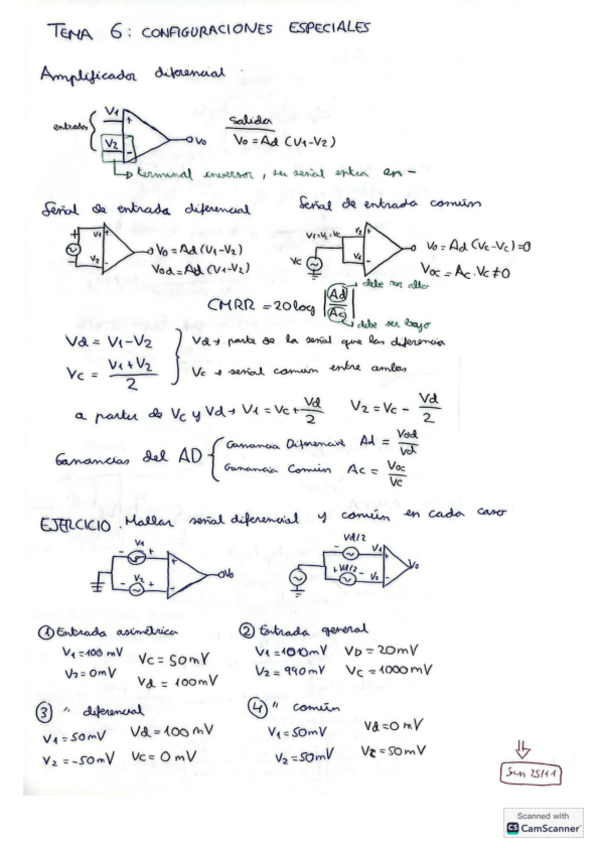 TEMA 6: CONFIGURACIONES ESPECIALES
Amplificador diferencial
entradas { V1 + V2 - Vo
salida
Vo = Ad (V1-V2)
↳ terminal inversor, su señal entra en -
Señal de entrada diferencial
Señal de entrada común
+ V1 V2 Vo = Ad (V1-V2)
Vod = Ad (V1-V2)
V1=V2=Vc Vc Vo = Ad (Vc-Vc)=0
Voc = Ac·Vc≠0
CMRR = 20log |Ad/Ac|
debe ser alto
debe ser bajo
Vd = V1-V2
Vc = (V1+V2)/2
Vd → parte de la señal que las diferencia
Vc → señal común entre ambas
a partir de Vc y Vd → V1 = Vc + Vd/2 V2 = Vc - Vd/2
Ganancias del AD { Ganancia Diferencial Ad = Vod/Vd
Ganancia Común Ac = Voc/Vc
EJERCICIO. Hallar señal diferencial y común en cada caso
- V1 + - V2 + + - Vo
Vd/2 - + V1 + Vd/2 - V2 Vo
① Entrada asimétrica
V1 = 100 mV
V2 = 0mV
Vc = 50mV
Vd = 100mV
② Entrada general
V1 = 1010mV
V2 = 990mV
VD = 20mV
Vc = 1000mV
③ " diferencial
V1 = 50mV
V2 = -50mV
Vd = 100 mV
Vc = 0 mV
④ " común
V1 = 50mV
V2 = 50mV
Vd = 0 mV
Vc = 50mV
25/11
Scanned with
CS CamScanner